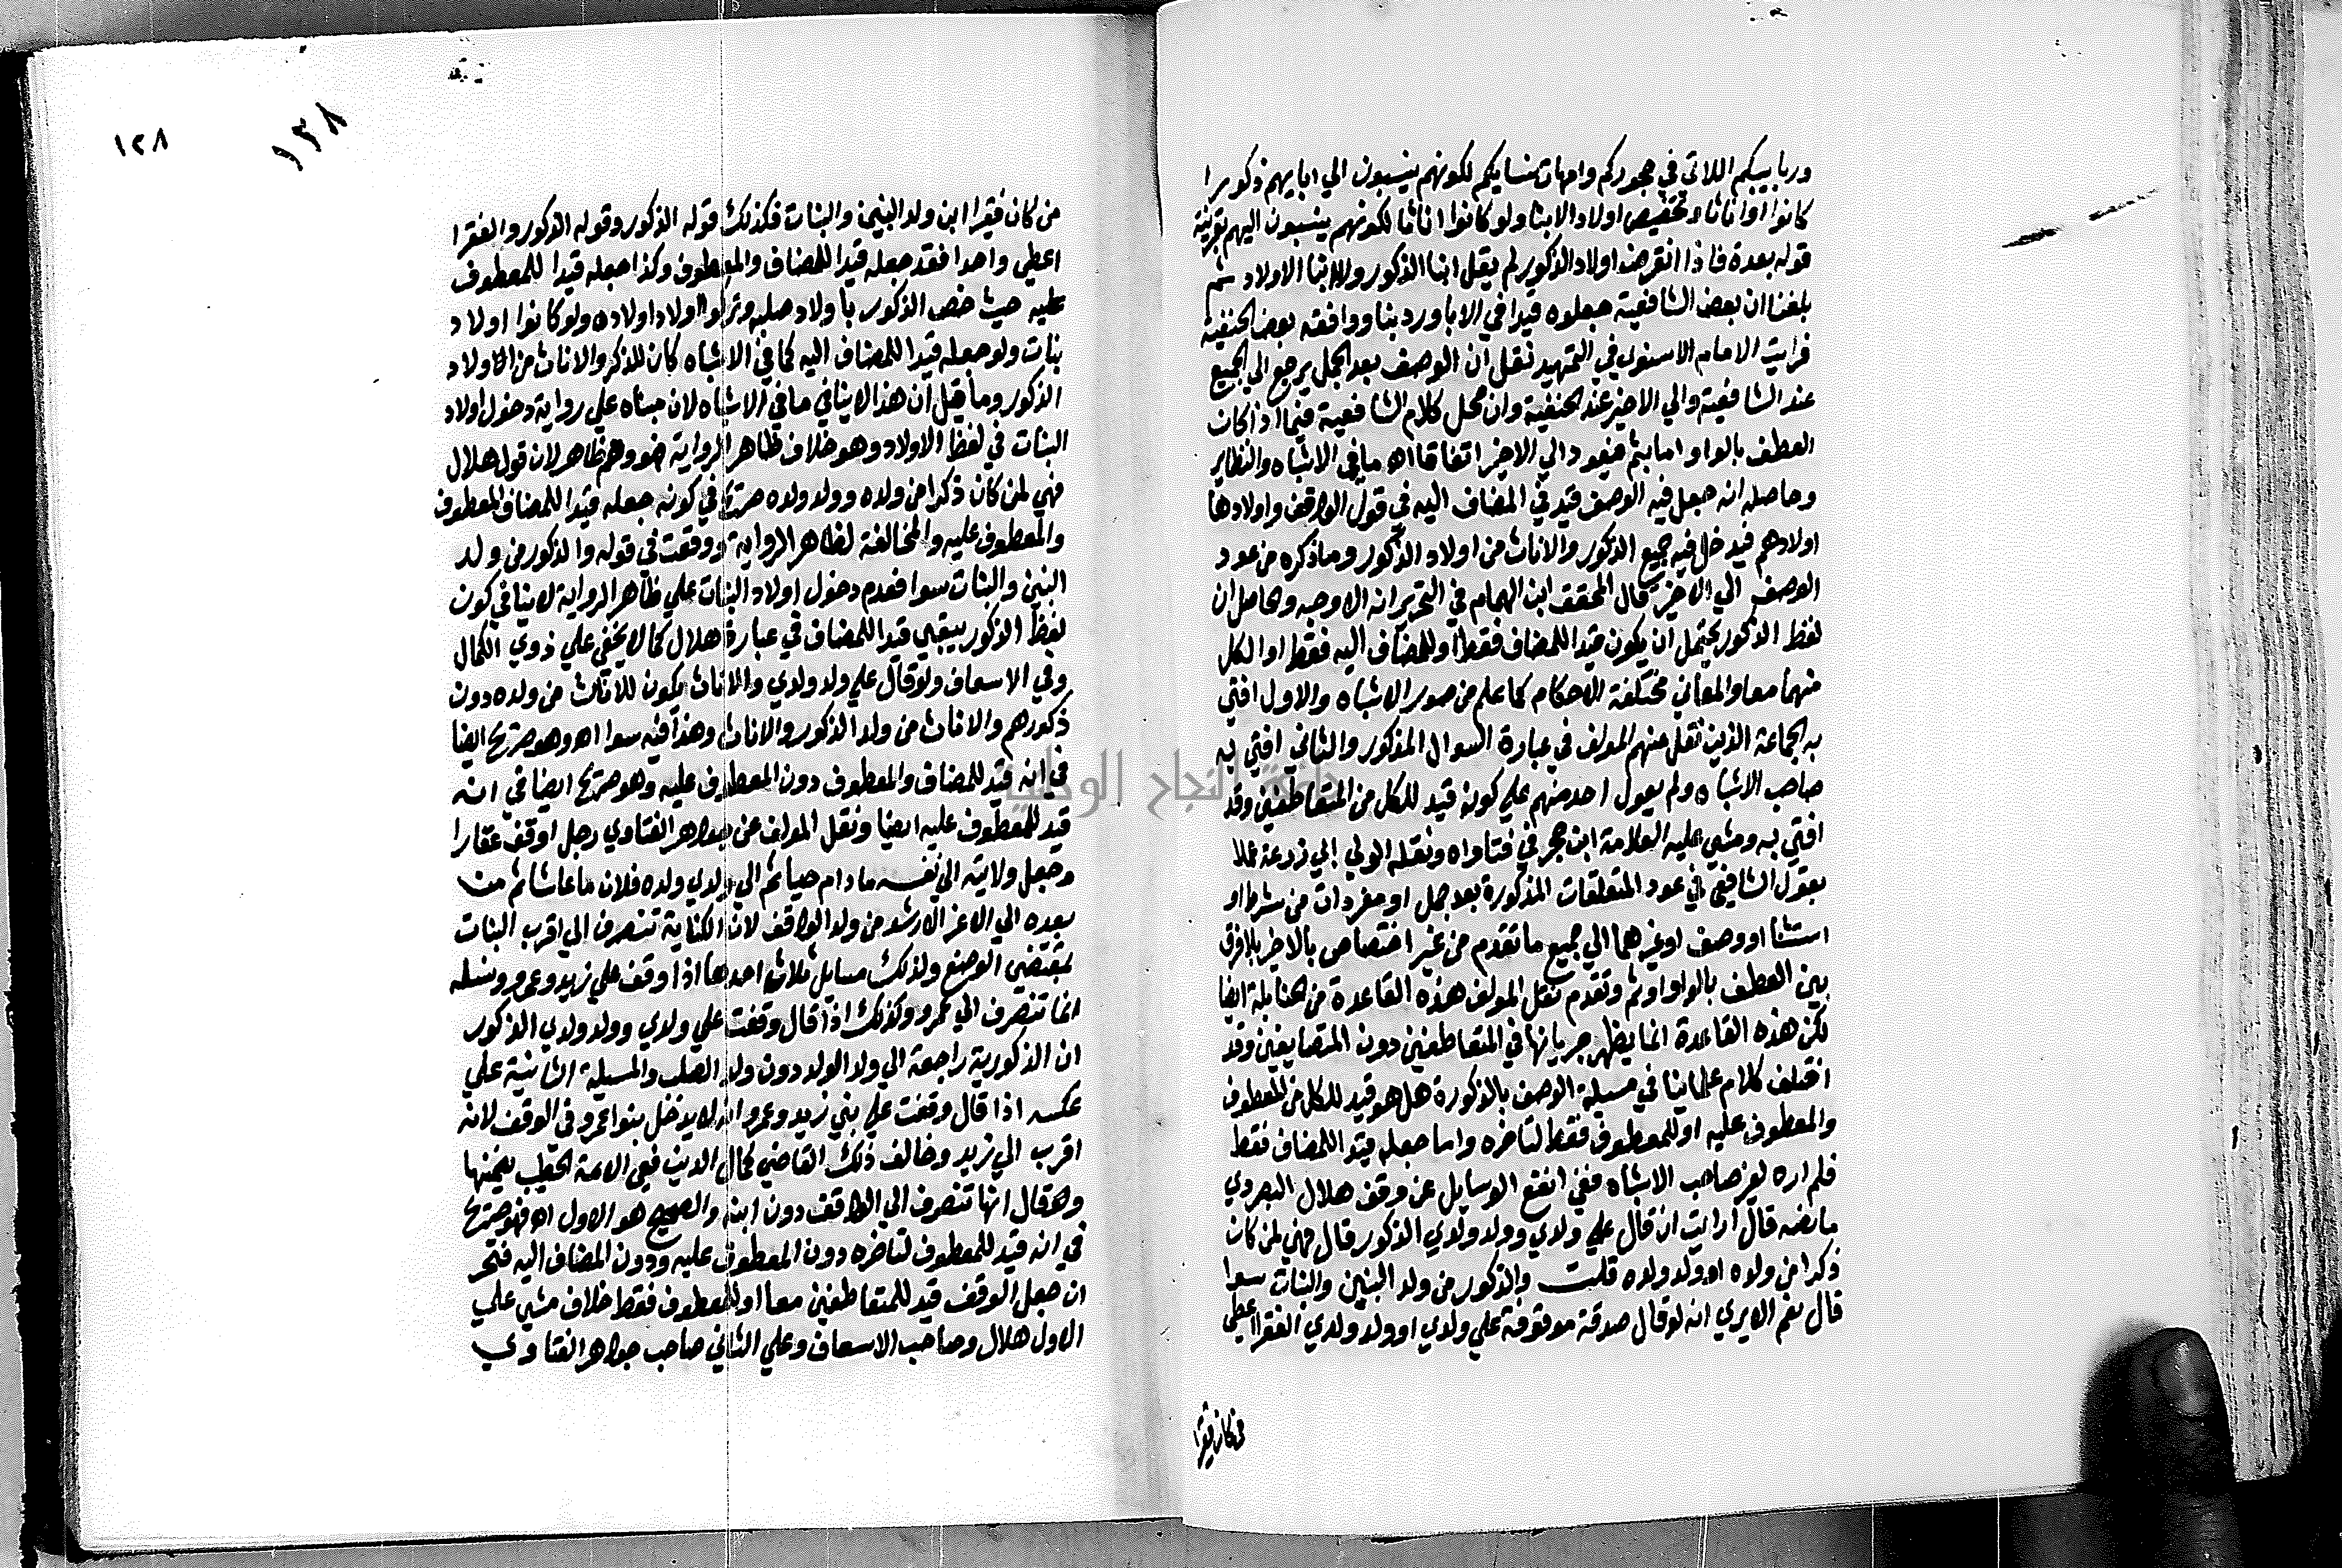 وربايبكم اللاتي في حجوركم وامهات نسايكم لكونهم ينسبون الي ابايهم ذكورا
كانوا او اناثا وتخصيص اولاد الابنا ولو كانوا اناثا لكونهم ينسبون اليهم بقرينة
قوله بعده فاذا انقرض اولاد الذكور لم يقل ابنا الذكور ولا ابنا الاولاد ثم
بلغنا ان بعض الشافعية جعلوه قيدا في الابا وردبنا ووافقه بعض الحنفية
فرايت الامام الاسنوي في التمهيد نقل ان الوصف بعد الجمل يرجع الي الجميع
عند الشافعية والي الاخير عند الحنفية وان محل كلام الشافعية فيما اذا كان
العطف بالواو واما بثم فيعود الي الاخير اتفاقا اه ما في الاشباه والنظاير
وحاصله انه جعل فيه الوصف قيد في المضاف اليه في قول الواقف واولادها
اولادهم فيدخل فيه جميع الذكور والاناث من اولاد الذكور وما ذكره من عود
الوصف الي الاخير قال المحقق ابن الهمام في التحرير انه الاوجه وحاصل ان
لفظ الذكور يحتمل ان يكون قيدا للمضاف فقط او للمضاف اليه فقط او الكل
منهما معا والمعاني مختلفة الاحكام كما علم من صور الاشباه والاول افتي
به الجماعة الذين نقل عنهم المولف في عبارة السوال المذكور والثاني افتي به
صاحب الاشباه ولم يعول احد منهم علي كونه قيد للكل من المتعاطفين وقد
افتي به ومشي عليه العلامة ابن حجر في فتاواه ونقله الولي ابي زرعة عملا
بقول الشافعي في عود المتعلقات المذكورة بعد جمل او مفردات من شرط او
استثنا او وصف او غيرهما الي جميع ما تقدم من غير اختصاص بالاخير بلا فرق
بين العطف بالواو او ثم وتقدم نقل المولف هذه القاعدة من الحنابلة ايضا
لكن هذه القاعدة انما يظهر جريانها في المتعاطفين دون المتضايفين وقد
اختلف كلام علماينا في مسيلة الوصف بالذكورة هل هو قيد للكل من المعطوف
والمعطوف عليه او للمعطوف فقط لتاخره واما جعله قيدا للمضاف فقط
فلم اره لغير صاحب الاشباه ففي انفع الوسايل عن وقف هلال البصري
ما نصه قال ارايت ان قال علي ولدي وولد ولدي الذكور قال فهي لمن كان
ذكرا من ولده او ولد ولده قلت والذكور من ولد البنين والبنات سوا
قال نعم الا يري انه لو قال صدقة موقوفة علي ولدي او ولد ولدي الفقرا اعطي
من كان فقيرا
١٢٨
١٢٨
من كان فقيرا ابن ولد البنين والبنات فكذلك قوله الذكور وقوله الذكور والفقرا
اعطي واحدا فقد جعله قيدا للمضاف والمعطوف وكذا جعله قيدا للمعطوف
عليه حيث خص الذكور باولاد صلبه وتركوا اولاد اولاده ولو كانوا اولاد
بنات ولو جعله قيدا للمضاف اليه كما في الاشباه كان للذكر والاناث من الاولاد
الذكور وما قيل ان هذا لا ينافي ما في الاشباه لان مبناه علي رواية دخول اولاد
البنات في لفظ الاولاد وهو خلاف ظاهر الرواية فهو وهم ظاهر لان قول هلال
فهي لمن كان ذكرا من ولده وولد ولده صريح في كونه جعله قيدا للمضاف المعطوف
والمعطوف عليه والمخالفة لظاهر الرواية ووقعت في قوله والذكور من ولد
البنين والبنات سوا فعدم دخول اولاد البنات علي ظاهر الرواية لا ينافي كون
لفظ الذكور يبقي قيدا للمضاف في عبارة هلال كما لا يخفي علي ذوي الكمال
وفي الاسعاف ولو قال علي ولد ولدي والاناث يكون للاناث من ولده دون
ذكورهم والاناث من ولد الذكور والاناث وهذا فيه سوا اه وهو صريح ايضا
في انه قيد للمضاف والمعطوف دون المعطوف عليه وهو صريح ايضا في انه
قيد للمعطوف عليه ايضا ونقل المولف عن جواهر الفتاوي رجل اوقف عقارا
وجعل ولايته الي نفسه ما دام حيا ثم الي ولدي ولده فلان ما عاشا ثم من
بعده الي الاعز الارشد من ولد الواقف لان الكناية تنصرف الي اقرب البنات
بمقتضي الوضع ولذلك مسايل ثلاث احدها اذا وقف علي زيد وعمرو ونسله
انما تنصرف الي عمرو وكذلك اذا قال وقفت علي ولدي وولد ولدي الذكور
ان الذكورية راجعة الي ولد الولد دون ولد الصلب والمسيلة الثانية علي
عكسه اذا قال وقفت علي بني زيد وعمرو انه لا يدخل بنوا عمرو في الوقف لانه
اقرب الي زيد وخالف ذلك القاضي كمال الدين فيعي الامة الخطيب بيمينها
وهو قال انها تنصرف الي الواقف دون ابنه والصحيح هو الاول اه فهو صريح
في انه قيد للمعطوف لتاخره دون المعطوف عليه ودون المضاف اليه فتحر
ان جعل الوقف قيد للمتعاطفين معا او للمعطوف فقط خلاف مشي علي
الاول هلال وصاحب الاسعاف وعلي الثاني صاحب جواهر الفتاوي
جامعة النجاح الوطنية